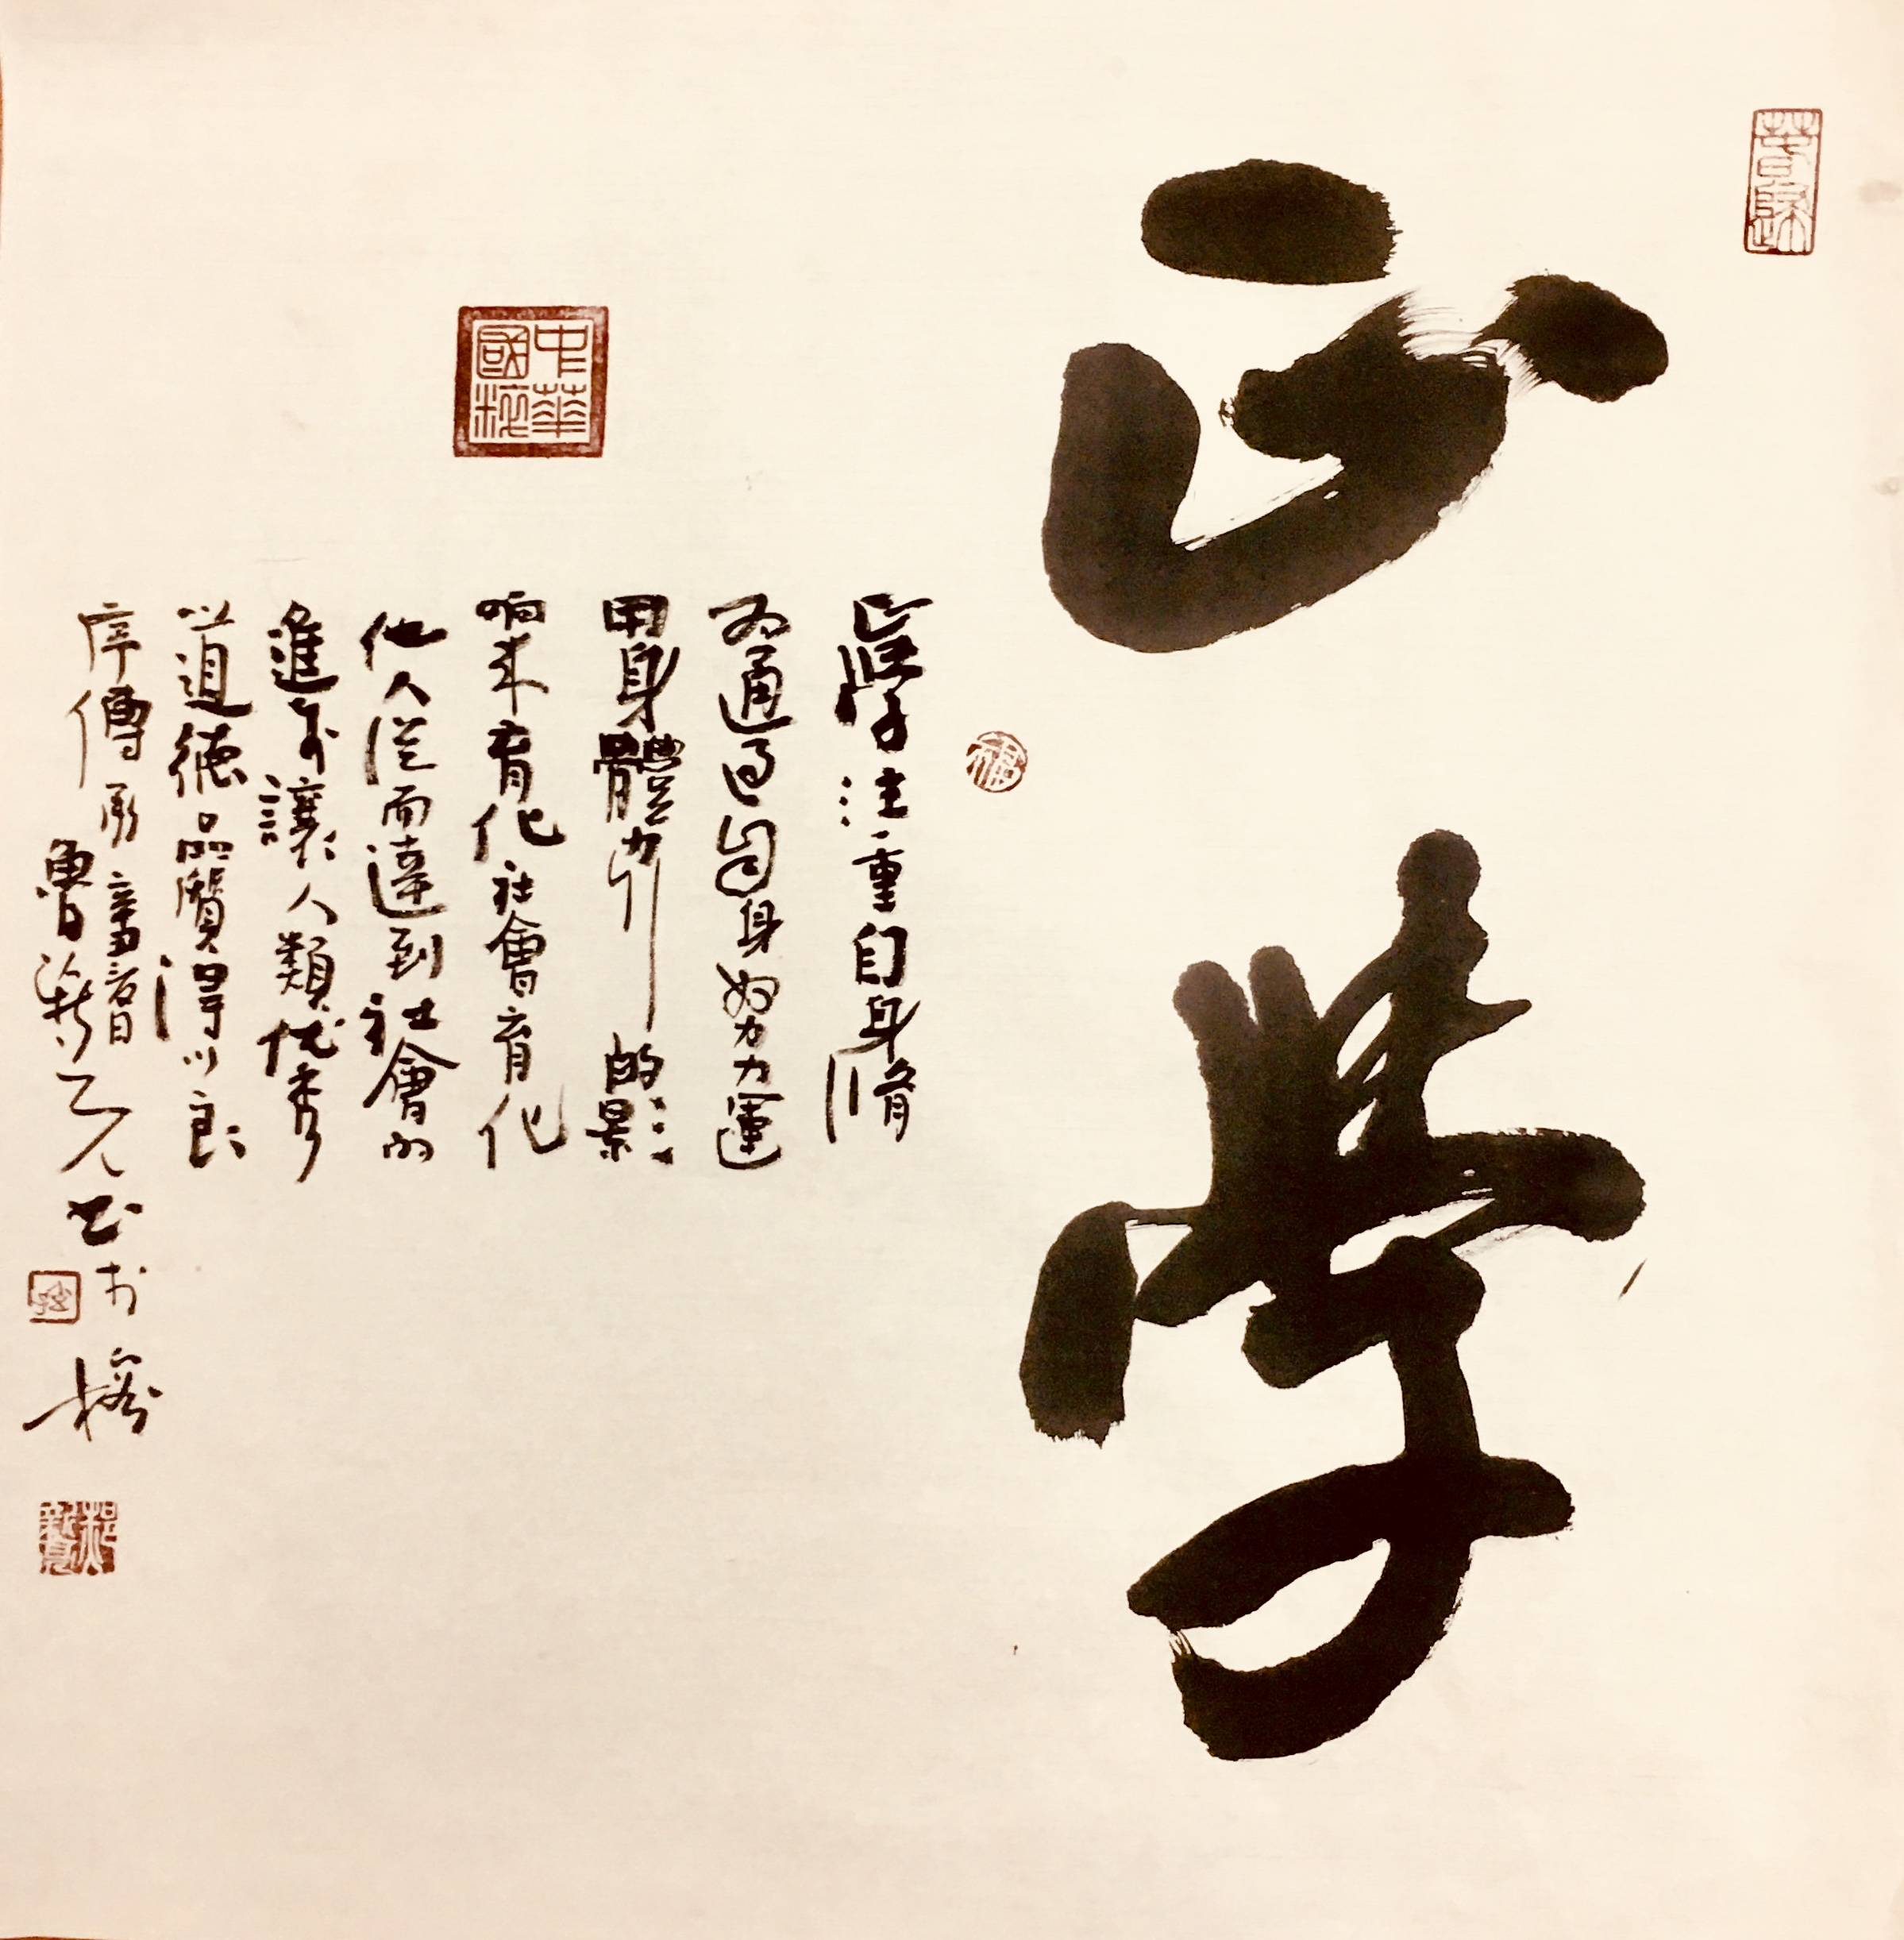 正学
正學注重自身脩
为通过自身努力運
用身體力行的影
响来育化社會育化
他人從而達到社會的
進步讓人類优秀
道德品質得以良
序傳承
魯 书於
中華國粹
福